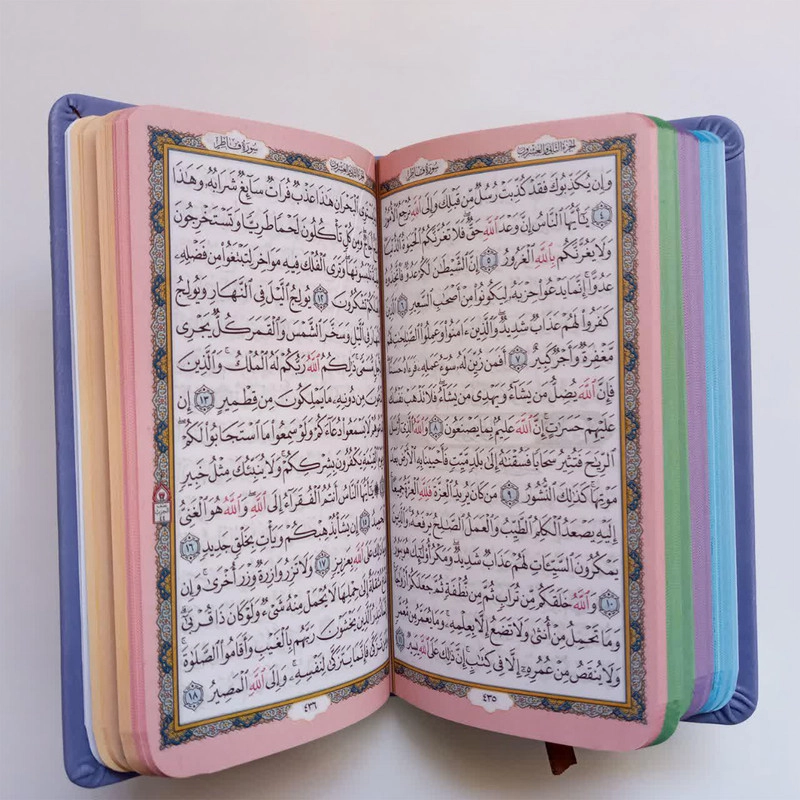 الجزء الثاني والعشرون سورة فاطر
وَإِن يُكَذِّبُوكَ فَقَدْ كُذِّبَتْ رُسُلٌ مِّن قَبْلِكَ وَإِلَى ٱللَّهِ تُرْجَعُ ٱلْأُمُورُ
٤ يَٰٓأَيُّهَا ٱلنَّاسُ إِنَّ وَعْدَ ٱللَّهِ حَقٌّ فَلَا تَغُرَّنَّكُمُ ٱلْحَيَوٰةُ ٱلدُّنْيَا
وَلَا يَغُرَّنَّكُم بِٱللَّهِ ٱلْغَرُورُ ٥ إِنَّ ٱلشَّيْطَٰنَ لَكُمْ عَدُوٌّ فَٱتَّخِذُوهُ
عَدُوًّا إِنَّمَا يَدْعُوا۟ حِزْبَهُۥ لِيَكُونُوا۟ مِنْ أَصْحَٰبِ ٱلسَّعِيرِ ٦
كَفَرُوا۟ لَهُمْ عَذَابٌ شَدِيدٌ وَٱلَّذِينَ ءَامَنُوا۟ وَعَمِلُوا۟ ٱلصَّٰلِحَٰتِ لَهُم
مَّغْفِرَةٌ وَأَجْرٌ كَبِيرٌ ٧ أَفَمَن زُيِّنَ لَهُۥ سُوٓءُ عَمَلِهِۦ فَرَءَاهُ حَسَنًا
فَإِنَّ ٱللَّهَ يُضِلُّ مَن يَشَآءُ وَيَهْدِى مَن يَشَآءُ فَلَا تَذْهَبْ نَفْسُكَ
عَلَيْهِمْ حَسَرَٰتٍ إِنَّ ٱللَّهَ عَلِيمٌۢ بِمَا يَصْنَعُونَ ٨ وَٱللَّهُ ٱلَّذِىٓ أَرْسَلَ
ٱلرِّيَٰحَ فَتُثِيرُ سَحَابًا فَسُقْنَٰهُ إِلَىٰ بَلَدٍ مَّيِّتٍ فَأَحْيَيْنَا بِهِ ٱلْأَرْضَ بَعْدَ
مَوْتِهَا كَذَٰلِكَ ٱلنُّشُورُ ٩ مَن كَانَ يُرِيدُ ٱلْعِزَّةَ فَلِلَّهِ ٱلْعِزَّةُ جَمِيعًا
إِلَيْهِ يَصْعَدُ ٱلْكَلِمُ ٱلطَّيِّبُ وَٱلْعَمَلُ ٱلصَّٰلِحُ يَرْفَعُهُۥ وَٱلَّذِينَ
يَمْكُرُونَ ٱلسَّيِّـَٔاتِ لَهُمْ عَذَابٌ شَدِيدٌ وَمَكْرُ أُو۟لَٰٓئِكَ هُوَ يَبُورُ
١٠ وَٱللَّهُ خَلَقَكُم مِّن تُرَابٍ ثُمَّ مِن نُّطْفَةٍ ثُمَّ جَعَلَكُمْ أَزْوَٰجًا
وَمَا تَحْمِلُ مِنْ أُنثَىٰ وَلَا تَضَعُ إِلَّا بِعِلْمِهِۦ وَمَا يُعَمَّرُ مِن مُّعَمَّرٍ
وَلَا يُنقَصُ مِنْ عُمُرِهِۦٓ إِلَّا فِى كِتَٰبٍ إِنَّ ذَٰلِكَ عَلَى ٱللَّهِ يَسِيرٌ
٤٣٥
الجزء الثاني والعشرون سورة فاطر
يَسْتَوِى ٱلْبَحْرَانِ هَٰذَا عَذْبٌ فُرَاتٌ سَآئِغٌ شَرَابُهُۥ وَهَٰذَا
وَمِن كُلٍّ تَأْكُلُونَ لَحْمًا طَرِيًّا وَتَسْتَخْرِجُونَ
تَلْبَسُونَهَا وَتَرَى ٱلْفُلْكَ فِيهِ مَوَاخِرَ لِتَبْتَغُوا۟ مِن فَضْلِهِۦ
تَشْكُرُونَ ١٢ يُولِجُ ٱلَّيْلَ فِى ٱلنَّهَارِ وَيُولِجُ
ٱلنَّهَارَ فِى ٱلَّيْلِ وَسَخَّرَ ٱلشَّمْسَ وَٱلْقَمَرَ كُلٌّ يَجْرِى
مُّسَمًّى ذَٰلِكُمُ ٱللَّهُ رَبُّكُمْ لَهُ ٱلْمُلْكُ وَٱلَّذِينَ
مِن دُونِهِۦ مَا يَمْلِكُونَ مِن قِطْمِيرٍ ١٣ إِن
تَدْعُوهُمْ لَا يَسْمَعُوا۟ دُعَآءَكُمْ وَلَوْ سَمِعُوا۟ مَا ٱسْتَجَابُوا۟ لَكُمْ
ٱلْقِيَٰمَةِ يَكْفُرُونَ بِشِرْكِكُمْ وَلَا يُنَبِّئُكَ مِثْلُ خَبِيرٍ
يَٰٓأَيُّهَا ٱلنَّاسُ أَنتُمُ ٱلْفُقَرَآءُ إِلَى ٱللَّهِ وَٱللَّهُ هُوَ ٱلْغَنِىُّ
١٥ إِن يَشَأْ يُذْهِبْكُمْ وَيَأْتِ بِخَلْقٍ جَدِيدٍ ١٦
ذَٰلِكَ عَلَى ٱللَّهِ بِعَزِيزٍ ١٧ وَلَا تَزِرُ وَازِرَةٌ وِزْرَ أُخْرَىٰ وَإِن
مُثْقَلَةٌ إِلَىٰ حِمْلِهَا لَا يُحْمَلْ مِنْهُ شَىْءٌ وَلَوْ كَانَ ذَا قُرْبَىٰٓ
تُنذِرُ ٱلَّذِينَ يَخْشَوْنَ رَبَّهُم بِٱلْغَيْبِ وَأَقَامُوا۟ ٱلصَّلَوٰةَ
تَزَكَّىٰ فَإِنَّمَا يَتَزَكَّىٰ لِنَفْسِهِۦ وَإِلَى ٱللَّهِ ٱلْمَصِيرُ ١٨
٤٣٦